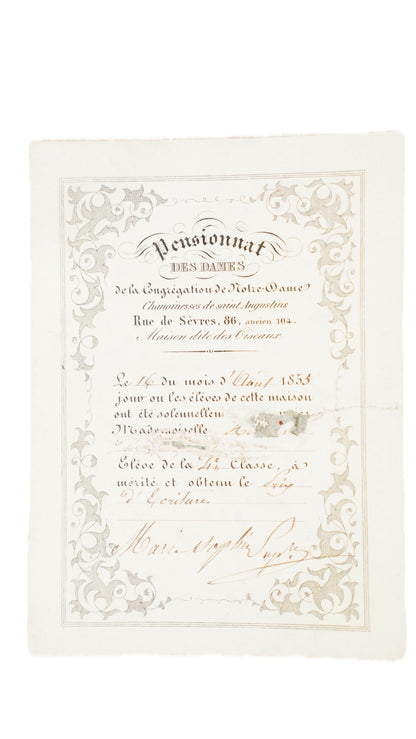 Pensionnat
DES DAMES
de la Congrégation de Notre-Dame
Chanoinesses de saint Augustin
Rue de Sèvres, 86, ancien 104.
Maison dite des Oiseaux
Le 16 du mois d'Août 1855
jour ou les élèves de cette maison
ont été solennellem
Mademoiselle
Elève de la 4e Classe, a
mérité et obtenu le Prix
d'Ecriture
Marie Sophie